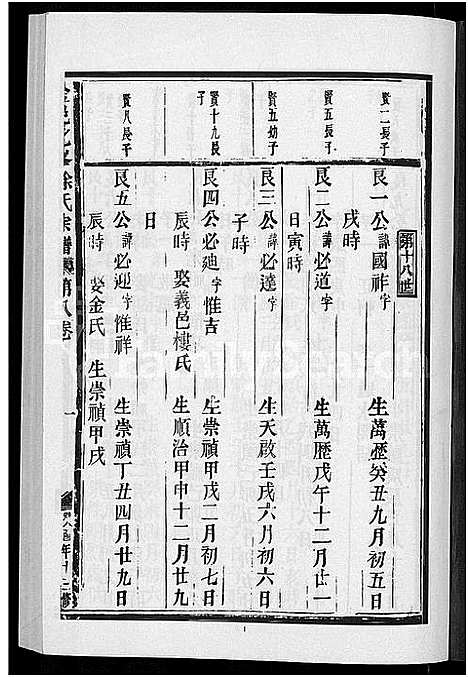 第十八世
賢二長子
良一公諱國祚字　生萬歷癸丑九月初五日
戌時
賢五長子
良二公諱必道字　生萬歷戊午十二月廿一
日寅時
賢五幼子
良三公諱必達字　生天啟壬戌六月初六日
子時
賢十九長
子
良四公諱必迪字惟吉　生崇禎甲戌二月初七日
辰時　娶義邑樓氏　生順治甲申十二月廿九
日
賢八長子
良五公諱必迎字惟祥　生崇禎丁丑四月廿九日
辰時　娶金氏　生崇禎甲戌
徐氏宗譜　第八卷　一